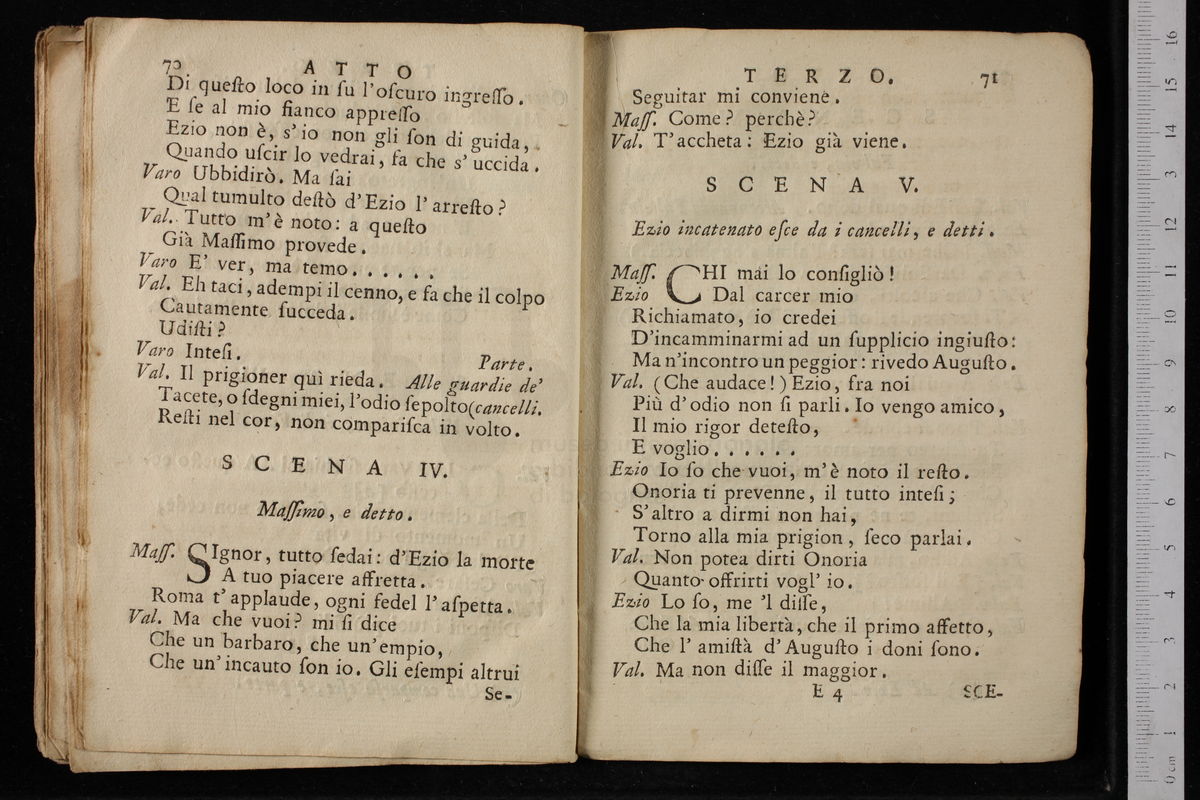 70 ATTO
Di queſto loco in ſu l'oſcuro ingreſſo.
E ſe al mio fianco appreſſo
Ezio non è, s'io non gli ſon di guida,
Quando uſcir lo vedrai, fa che s'uccida.
Varo Ubbidirò. Ma ſai
Qual tumulto deſtò d'Ezio l'arreſto?
Val. Tutto m'è noto: a queſto
Già Maſſimo provede.
Varo E' ver, ma temo......
Val. Eh taci, adempi il cenno, e fa che il colpo
Cautamente ſucceda.
Udiſti?
Varo Inteſi. Parte.
Val. Il prigioner quì rieda. Alle guardie de'
Tacete, o ſdegni miei, l'odio ſepolto (cancelli.
Reſti nel cor, non compariſca in volto.
SCENA IV.
Maſſimo, e detto.
Maſſ. SIgnor, tutto ſedai: d'Ezio la morte
A tuo piacere affretta.
Roma t'applaude, ogni fedel l'aſpetta.
Val. Ma che vuoi? mi ſi dice
Che un barbaro, che un'empio,
Che un'incauto ſon io. Gli eſempi altrui
Se-
TERZO. 71
Seguitar mi conviene.
Maſſ. Come? perchè?
Val. T'accheta: Ezio già viene.
SCENA V.
Ezio incatenato eſce da i cancelli, e detti.
Maſſ. CHI mai lo conſigliò!
Ezio Dal carcer mio
Richiamato, io credei
D'incamminarmi ad un ſupplicio ingiuſto:
Ma n'incontro un peggior: rivedo Auguſto.
Val. (Che audace!) Ezio, fra noi
Più d'odio non ſi parli. Io vengo amico,
Il mio rigor deteſto,
E voglio......
Ezio Io ſo che vuoi, m'è noto il reſto.
Onoria ti prevenne, il tutto inteſi;
S'altro a dirmi non hai,
Torno alla mia prigion, ſeco parlai.
Val. Non potea dirti Onoria
Quanto offrirti vogl' io.
Ezio Lo ſo, me 'l diſſe,
Che la mia libertà, che il primo affetto,
Che l'amiſtà d'Auguſto i doni ſono.
Val. Ma non diſſe il maggior.
E 4 SCE-
16
15
14
13
12
11
10
9
8
7
6
5
4
3
2
1
0 cm